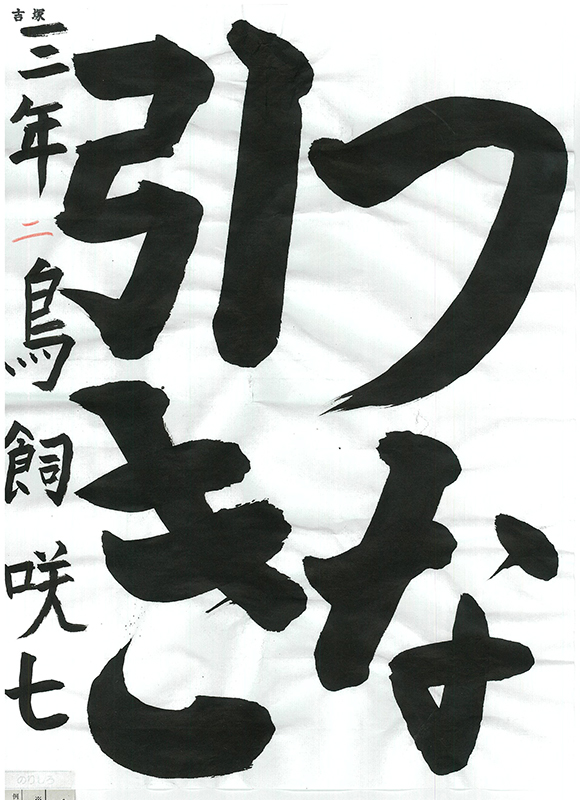 つな
引き
吉塚
三年 二 鳥飼咲七
のりしろ
例